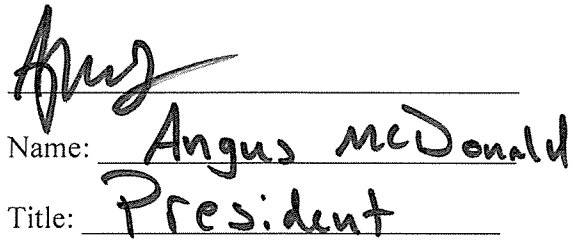 Name: Angus McDonald
Title: President